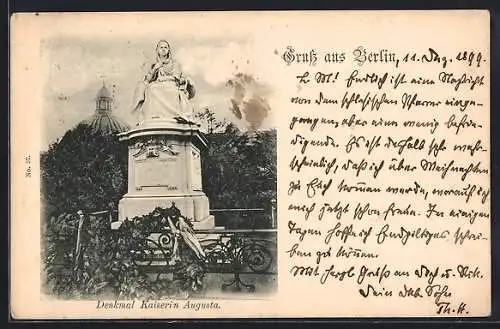 Gruß aus Berlin, 11. Dez. 1899.
L. M! Endlich ist eine Nachricht
von dem schlesischen Pfarrer einge-
gangen, aber eine wenig befrie-
digende. Es ist deshalb sehr wahr-
scheinlich, daß ich über Weihnachten
zu Euch kommen werde, worauf ich
mich jetzt schon freue. In einigen
Tagen hoffe ich Endgiltiges schrei-
ben zu können.
Mit herzl. Gruß an dich u.
Dein dkb. Sohn
Th. H.
No. 25.
Denkmal Kaiserin Augusta.